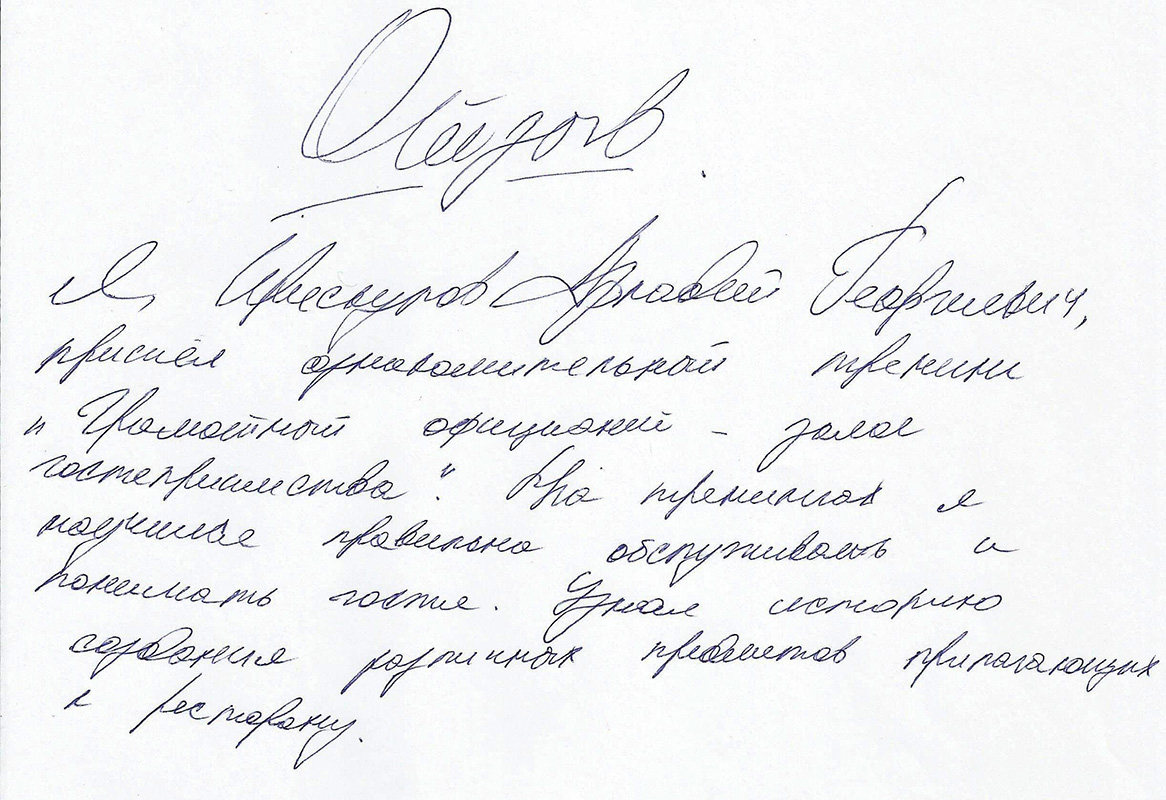 Отзыв.
Я, Аркадий Георгиевич,
ознакомительной тренинг
"Грамотный официант - залог
гостеприимства". На тренингах я
научился правильно обслуживать и
понимать гостя. Узнал историю
создания различных предметов прилагающих
к ресторану.